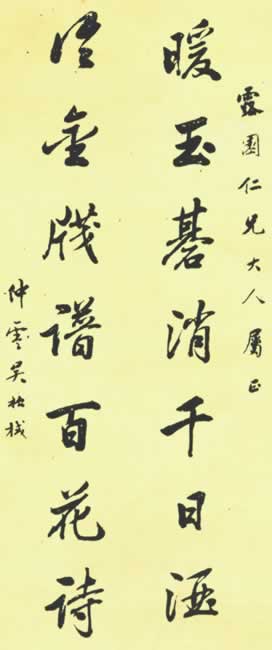 園仁兄大人屬正
暖玉碁消千日酒
泥金牋譜百花詩
仲雲吳振棫